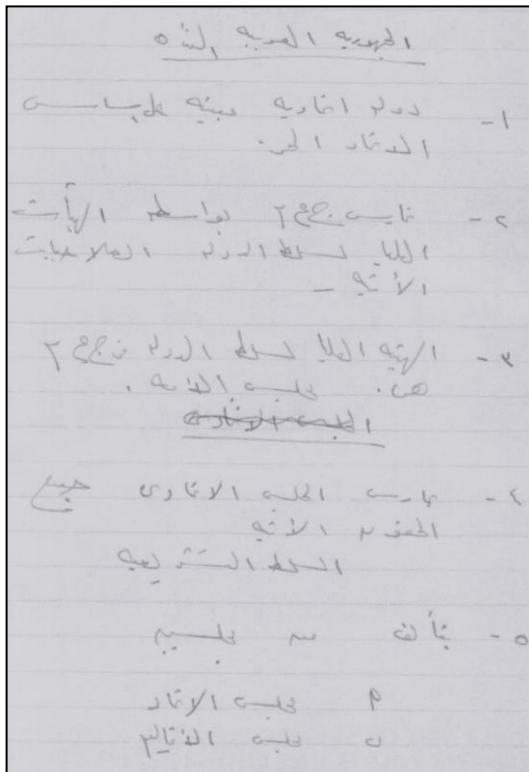 الجمهورية العربية المتحدة
١- دولة اتحادية مبنية على اساس
الاتحاد الحر.
٢- تمارس ج ع م بواسطة الهيأت
العليا لسلطة الدولة الصلاحيات
الأتية -
٣- الهيئة العليا لسلطة الدولة في ج ع م
هى. مجلس الامه.
المجلس الاتحادى
٤- يمارس المجلس الاتحادى جميع
الحقوق الأتية
السلطة التشريعية
٥- يتألف من مجلسين
م مجلس الاتحاد
ب مجلس الاقاليم